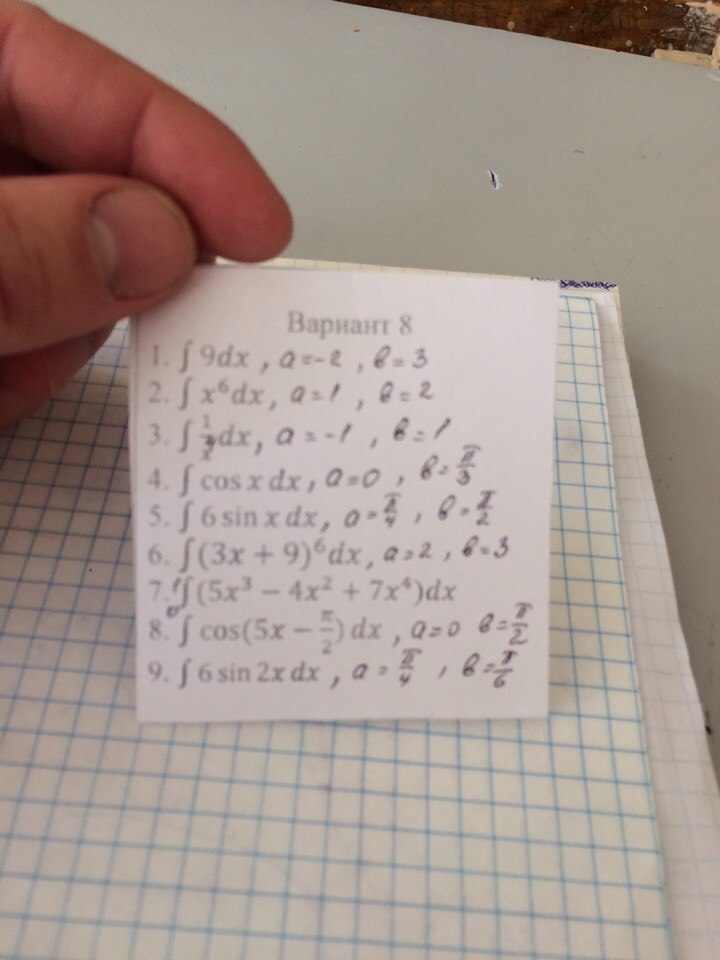 Вариант 8
1. ∫ 9dx , a=-2 , b=3
2. ∫ x⁶dx, a=1 , b=2
3. ∫ dx, a=-1 , b=1
4. ∫ cos x dx, a=0 , b=π/3
5. ∫ 6 sin x dx, a=π/4 , b=π/2
6. ∫(3x + 9)⁶dx, a=2 , b=3
7. ∫(5x³ − 4x² + 7x⁴)dx
8. ∫ cos(5x − π/2) dx , a=0 b=π/2
9. ∫ 6 sin 2x dx , a=π/4 , b=π/6